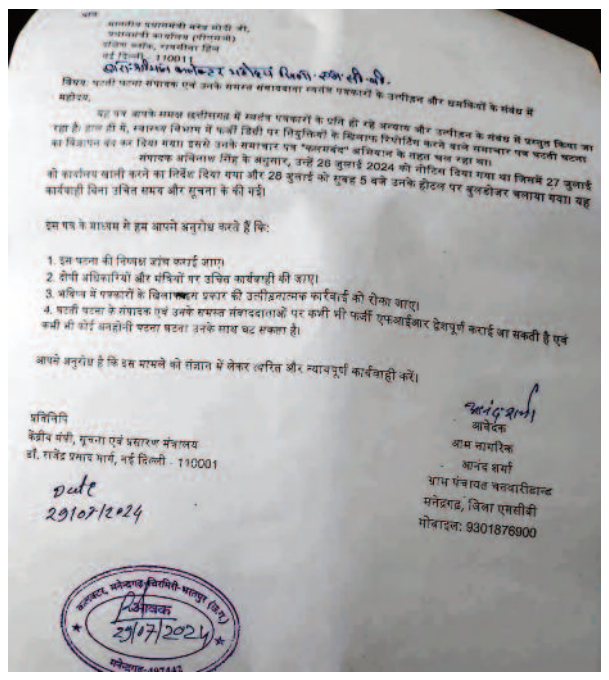 प्रति
माननीय प्रधानमंत्री नरेंद्र मोदी जी,
प्रधानमंत्री कार्यालय (पीएमओ)
दक्षिण ब्लॉक, रायसीना हिल
नई दिल्ली, 110011
द्वारा:- श्रीमान कलेक्टर महोदय जिला- एम.सी.बी.
विषय: घटती घटना संपादक एवं उनके समस्त संवाददाता स्वतंत्र पत्रकारों के उत्पीड़न और धमकियों के संबंध में
महोदय,
यह पत्र आपके समक्ष छत्तीसगढ़ में स्वतंत्र पत्रकारों के प्रति हो रहे अन्याय और उत्पीड़न के संबंध में प्रस्तुत किया जा
रहा है। हाल ही में, स्वास्थ्य विभाग में फर्जी डिग्री पर नियुक्तियों के खिलाफ रिपोर्टिंग करने वाले समाचार पत्र घटती घटना
का विज्ञापन बंद कर दिया गया। इससे उनके समाचार पत्र "कलमबंद" अभियान के तहत चल रहा था।
संपादक अविनाश सिंह के अनुसार, उन्हें 26 जुलाई 2024 को नोटिस दिया गया था जिसमें 27 जुलाई
को कार्यालय खाली करने का निर्देश दिया गया और 28 जुलाई को सुबह 5 बजे उनके होटल पर बुलडोजर चलाया गया। यह
कार्यवाही बिना उचित समय और सूचना के की गई।
इस पत्र के माध्यम से हम आपसे अनुरोध करते हैं कि:
1. इस घटना की निष्पक्ष जांच कराई जाए।
2. दोषी अधिकारियों और मंत्रियों पर उचित कार्यवाही की जाए।
3. भविष्य में पत्रकारों के खिलाफ प्रकार की उत्पीड़नात्मक कार्रवाई को रोका जाए।
4. घटती घटना के संपादक एवं उनके समस्त संवाददाताओं पर कभी भी फर्जी एफआईआर द्वेशपूर्ण कराई जा सकती है एवं
कभी भी कोई अनहोनी घटना घटना उनके साथ घट सकता है।
आपसे अनुरोध है कि इस मामले को संज्ञान में लेकर त्वरित और न्यायपूर्ण कार्यवाही करें।
आनंद शर्मा
आवेदक
आम नागरिक
आनंद शर्मा
ग्राम पंचायत चनवारीडान्ड
मनेंद्रगढ़, जिला एमसीबी
मोबाइल: 9301876900
प्रतिलिपि
केंद्रीय मंत्री, सूचना एवं प्रसारण मंत्रालय
डॉ. राजेंद्र प्रसाद मार्ग, नई दिल्ली - 110001
Date
29/07/2024
कलेक्टर, मनेन्द्रगढ़-चिरमिरी-भरतपुर (छ.ग.)
आवक
29/07/2024
मनेन्द्रगढ़-497442